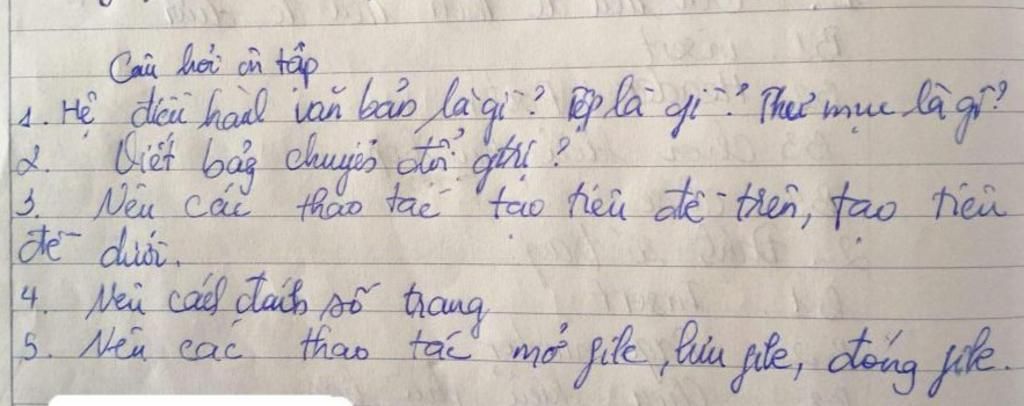 Câu hỏi ôn tập
1. Hệ điều hành văn bản là gì? Tệp là gì? Thư mục là gì?
2. Viết bảng chuyển đổi gtrị?
3. Nêu các thao tác tạo tiêu đề trên, tạo tiêu
đề dưới.
4. Nêu cách đánh số trang
5. Nêu các thao tác mở file, lưu file, đóng file.